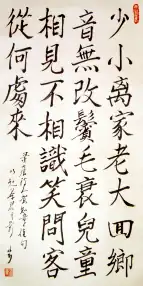 少小離家老大回鄉
音無改鬢毛衰兒童
相見不相識笑問客
從何處來